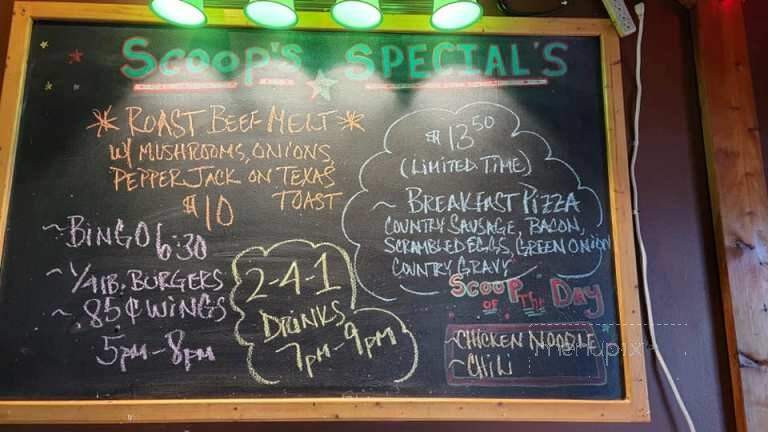 SCOOP'S SPECIAL'S
* ROAST BEEF MELT *
W/ MUSHROOMS, ONIONS,
PEPPER JACK ON TEXAS
TOAST
$10
~ BINGO 6:30
~ 1/4 LB. BURGERS
~ .85¢ WINGS
5PM - 8PM
2-4-1
DRINKS
7PM - 9PM
$13.50
(LIMITED TIME)
~ BREAKFAST PIZZA
COUNTRY SAUSAGE, BACON,
SCRAMBLED EGGS, GREEN ONION
COUNTRY GRAVY
SCOOP OF THE DAY
~ CHICKEN NOODLE
~ CHILI
menupix